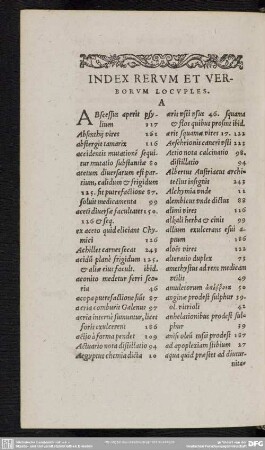 INDEX RERVM ET VER-
BORVM LOCVPLES.
A
ABscessus aperit psy-
lium 217
Absenthij vires 161
abstergit tamarix 116
accidentis mutationē sequi-
tur mutatio substantiæ 80
acetum diuersarum est par-
tium, calidum & frigidum
125. fit putrefactione 87.
soluit medicamenta 99
aceti diuersæ facultates 150.
126 & seq.
ex aceto quid eliciant Chy-
mici 126
Achillis carnes secat 243
acidū planè frigidum 125.
& aliæ eius facult. ibid.
aconito medetur ferri sco-
ria 46
acopa putrefactione fiūt 87
æris comburit Galenus 97
aëria interni sumuntur, licet
foris exulcerent 186
actio à forma pendet 109
Actuario nota distillatio 94
Aegyptus chemia dicta 10
æris vsti vsus 46. squama
& flos quibus prosint ibid.
æris squamæ vires 17. 122
Aeschrionis cancri vsti 223
Aetio nota calcinatio 98.
distillatio 94
Albertus Austriacus archi-
tectus insignis 243
Alchymia vnde 11
alembicus vnde dictus 88
alimi vires 116
alkali herba & cinis 99
allium exulcerans esui a-
ptum 186
aloës vires 122
alternatio duplex 73
amethystus ad rem medicam
vtilis 49
amuletorum ἀλεξίφα 50
anginæ prodest sulphur 39.
ol. vitrioli 42
anhelationibus prodest sul-
phur 39
anisi oleū tussi prodest 187
ad apoplexiam stibium 27
aqua quid præstet ad diutur-
nitar